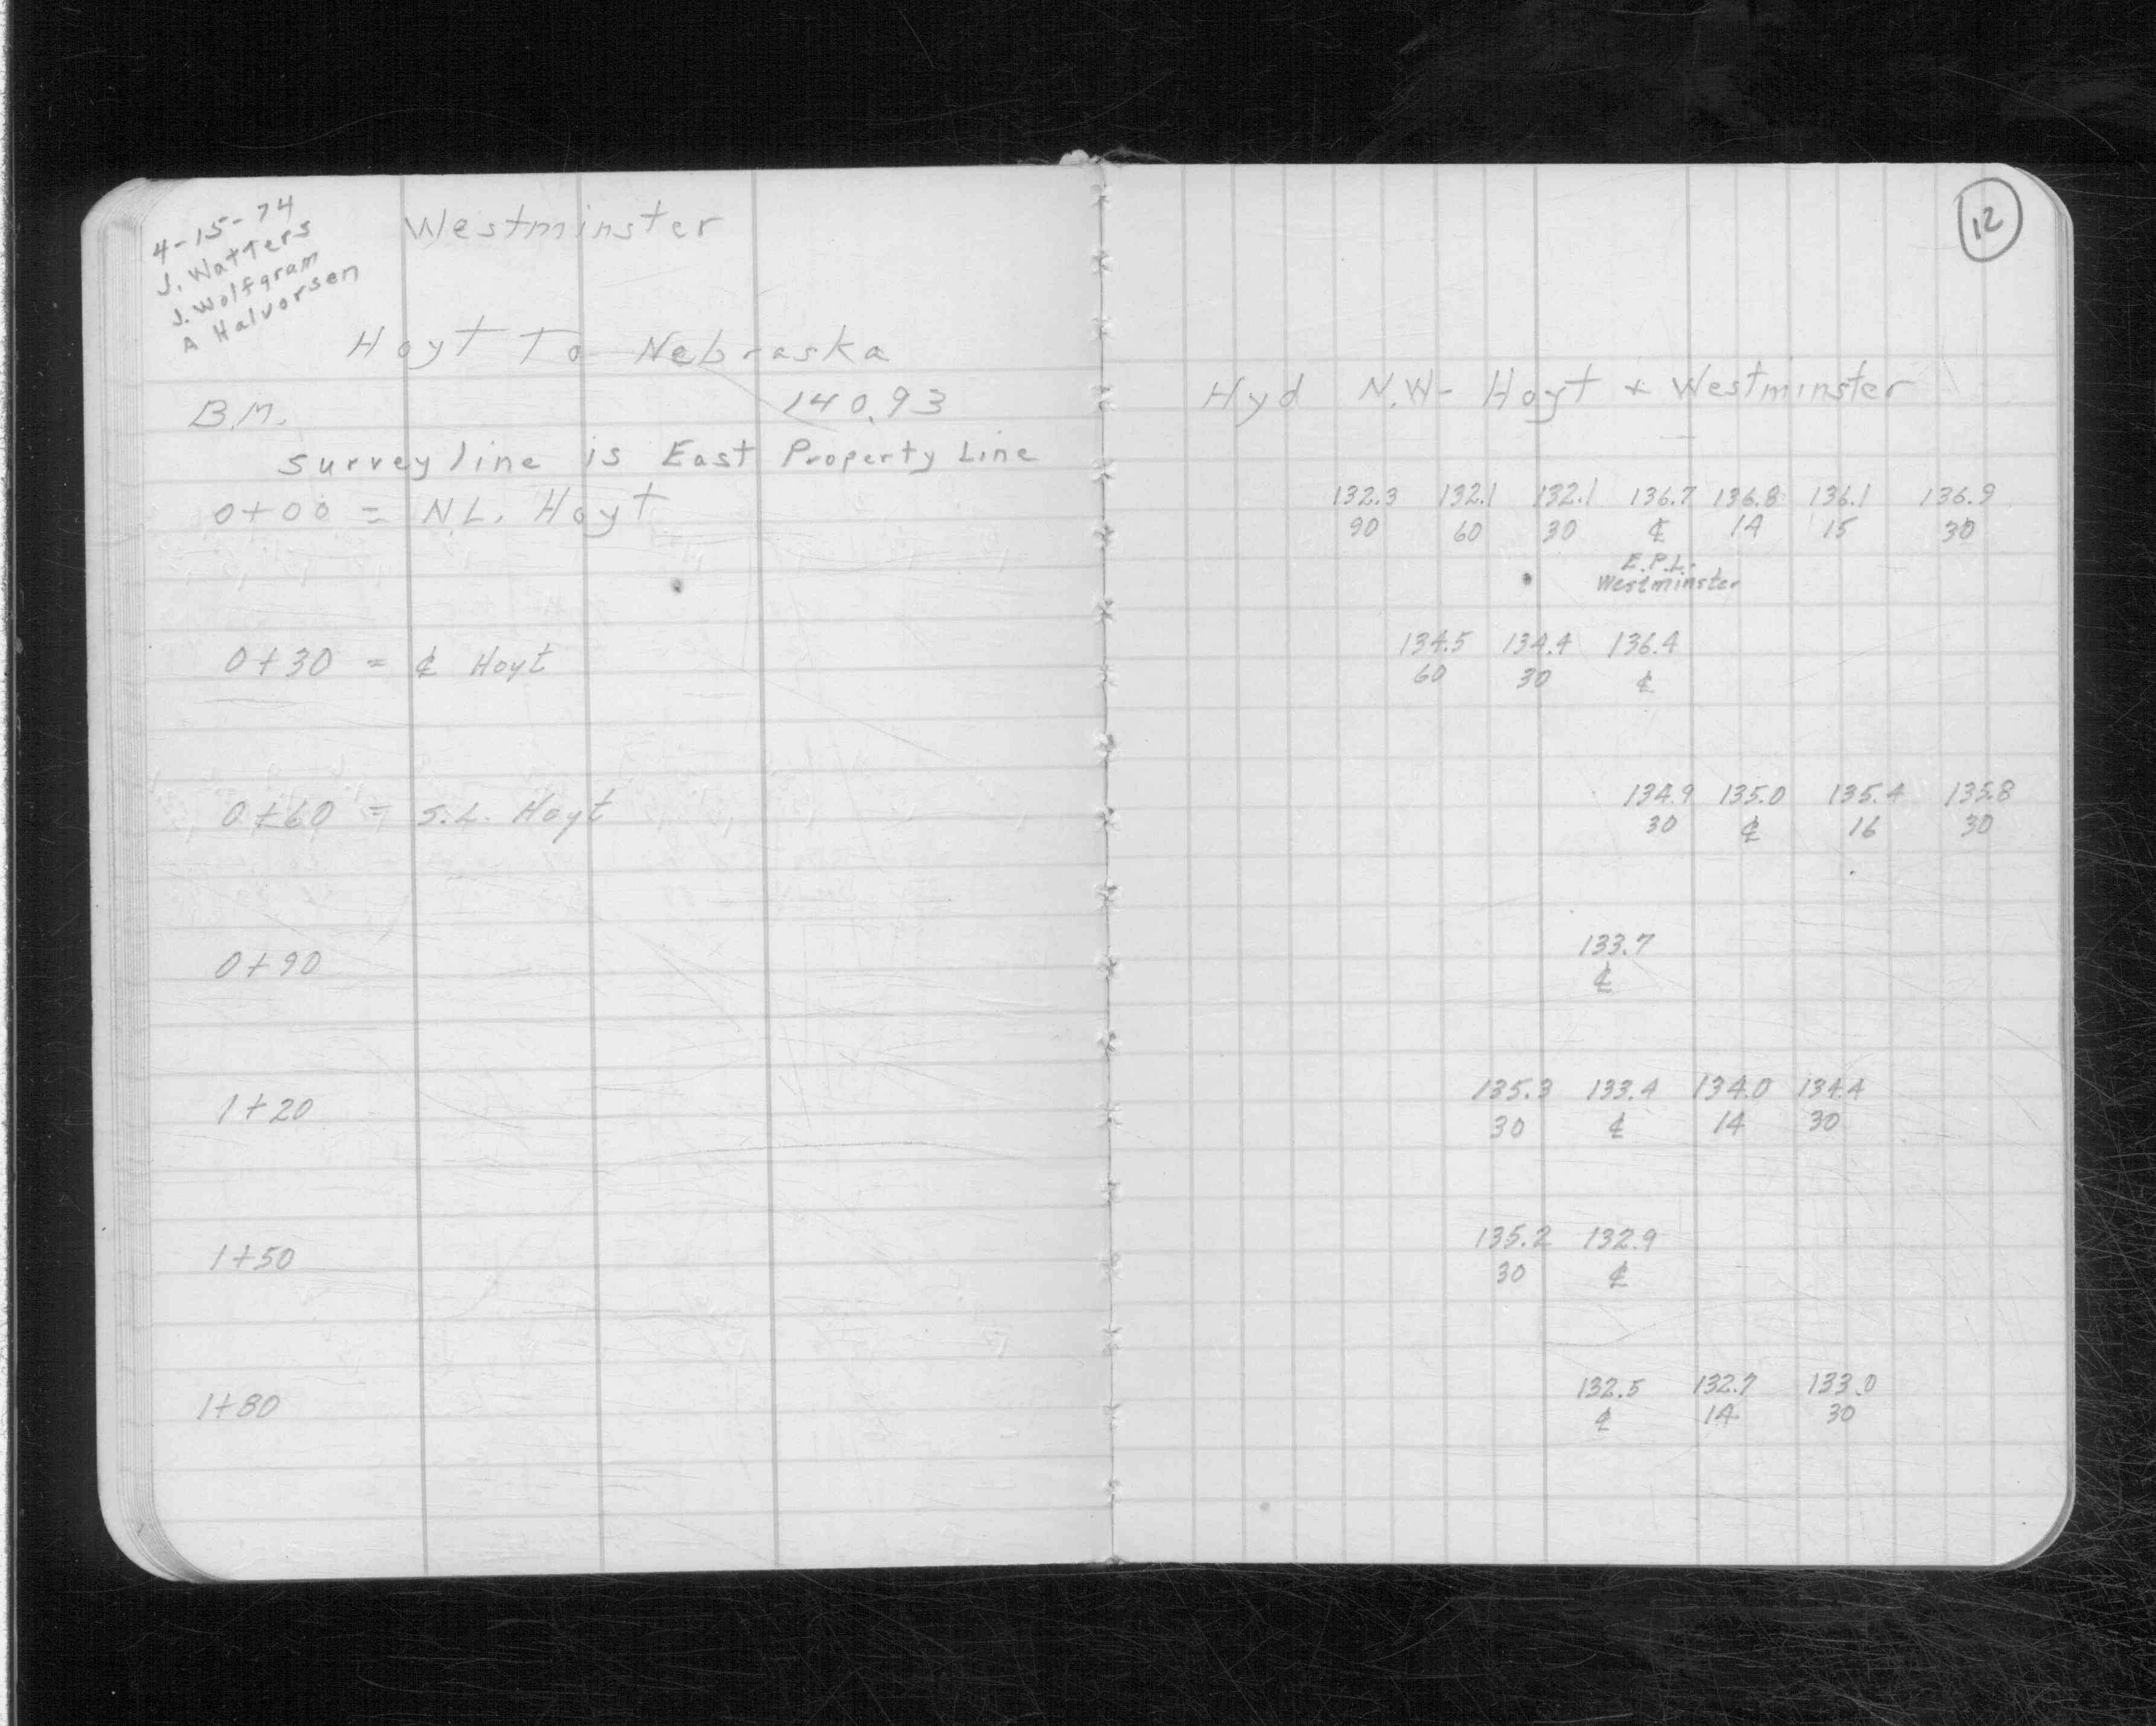 4-15-74
J. Watters
J. Wolfgram
A Halvorsen
Westminster
Hoyt To Nebraska
B.M. 140.93
Survey line is East Property Line
0+00 = N.L. Hoyt
0+30 = ℄ Hoyt
0+60 = S.L. Hoyt
0+90
1+20
1+50
1+80
12
Hyd N.W- Hoyt + Westminster
132.3 132.1 132.1 136.7 136.8 136.1 136.9
90 60 30 ℄ 14 15 30
E.P.L.
Westminster
134.5 134.4 136.4
60 30 ℄
134.9 135.0 135.4 135.8
30 ℄ 16 30
133.7
℄
135.3 133.4 134.0 134.4
30 ℄ 14 30
135.2 132.9
30 ℄
132.5 132.7 133.0
℄ 14 30